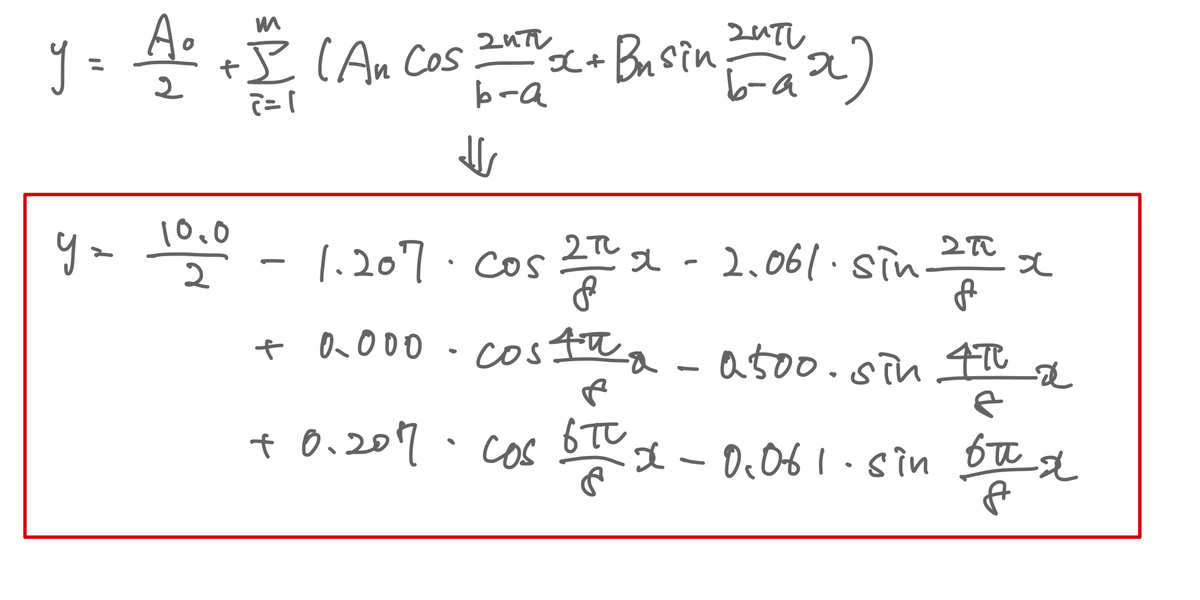 y = A₀/2 + Σ_{i=1}^{m} (An cos 2nπ/b-a x + Bn sin 2nπ/b-a x)
⇓
y = 10.0/2 - 1.207 · cos 2π/8 x - 2.061 · sin 2π/8 x
+ 0.000 · cos 4π/8 x - 0.500 · sin 4π/8 x
+ 0.207 · cos 6π/8 x - 0.061 · sin 6π/8 x